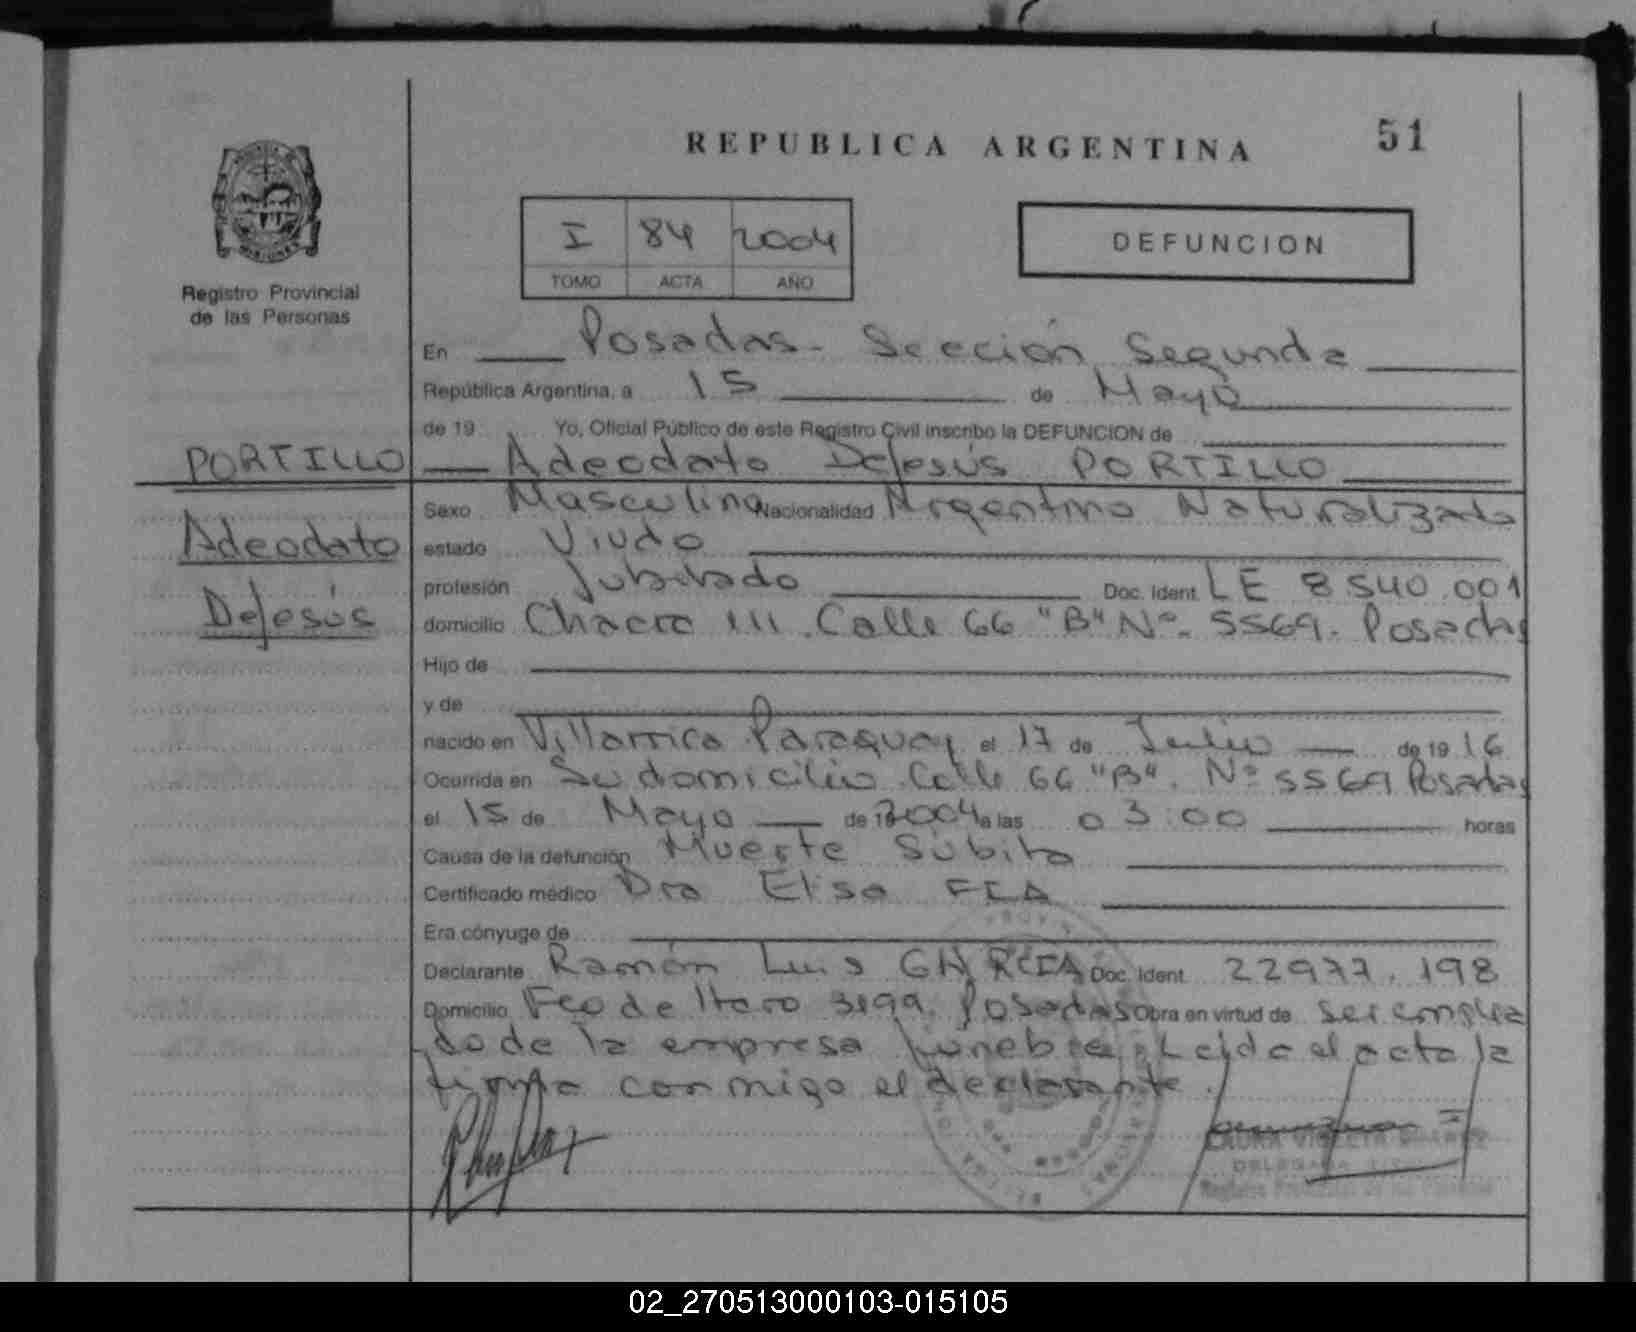 REPUBLICA ARGENTINA
51
I 84 2004
TOMO ACTA AÑO
DEFUNCION
Registro Provincial
de las Personas
En Posadas - Sección Segunda
República Argentina, a 15 de Mayo
de 19 Yo, Oficial Público de este Registro Civil inscribo la DEFUNCION de
PORTILLO
Adeodato DeJesús PORTILLO
Adeodato
DeJesús
Sexo Masculino Nacionalidad Argentino Naturalizado
estado Viudo
profesión Jubilado Doc. Ident. LE 8540.001
domicilio Chacra 111. Calle 66 "B" Nº. 5569. Posadas
Hijo de
y de
nacido en Villarrica Paraguay el 17 de Julio de 19 16
Ocurrida en Su domicilio Calle 66 "B". Nº 5569 Posadas
el 15 de Mayo de 2004 a las 03:00 horas
Causa de la defunción Muerte Subita
Certificado médico Dra Elisa
Era cónyuge de
Declarante Ramón Luis GARCIA Doc. Ident. 22977.198
Domicilio Fco de Haro 3199. Posadas Obra en virtud de ser emplea
do de la empresa fúnebre. Leida el acta la
firma conmigo el declarante.
LAURA VIOLETA
DELEGADA
Registro Provincial de las Personas
02_270513000103-015105